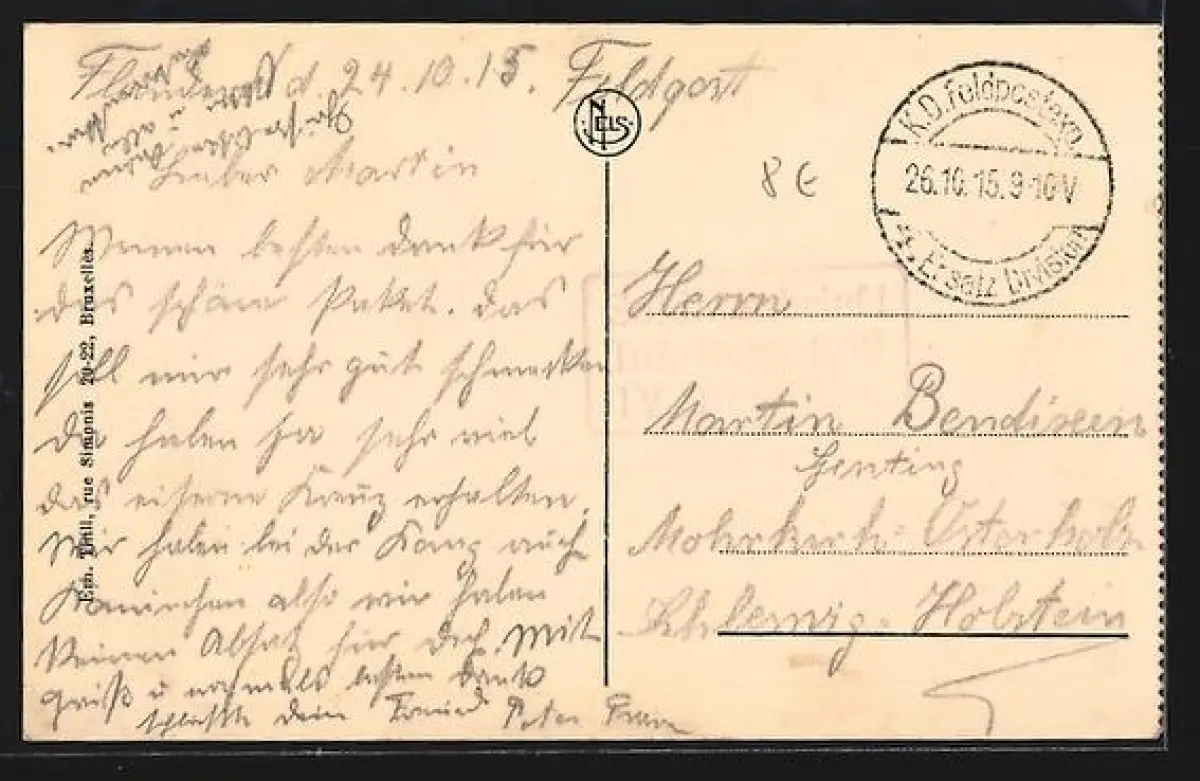 Flandern d. 24.10.15. Feldpost
Lieber Martin
Meinen besten Dank für
das schöne Paket. Das
soll mir sehr gut schmecken
haben ja sehr viel
das eiserne Kreuz erhalten.
Wir haben bei der auch
Kaninchen also wir haben
keinen Absatz für dich. Mit
Gruß u nochmals besten Dank
schließt dein Freund Peter
Ern. Thill, rue Simonis 20-22, Bruxelles.
NELS
8 €
K.D. Feldpostexp.
26.10.15.9-10V
4. Ersatz Division
Herrn
Martin Bendixen
Mohrkirch-Osterholz
Schleswig-Holstein